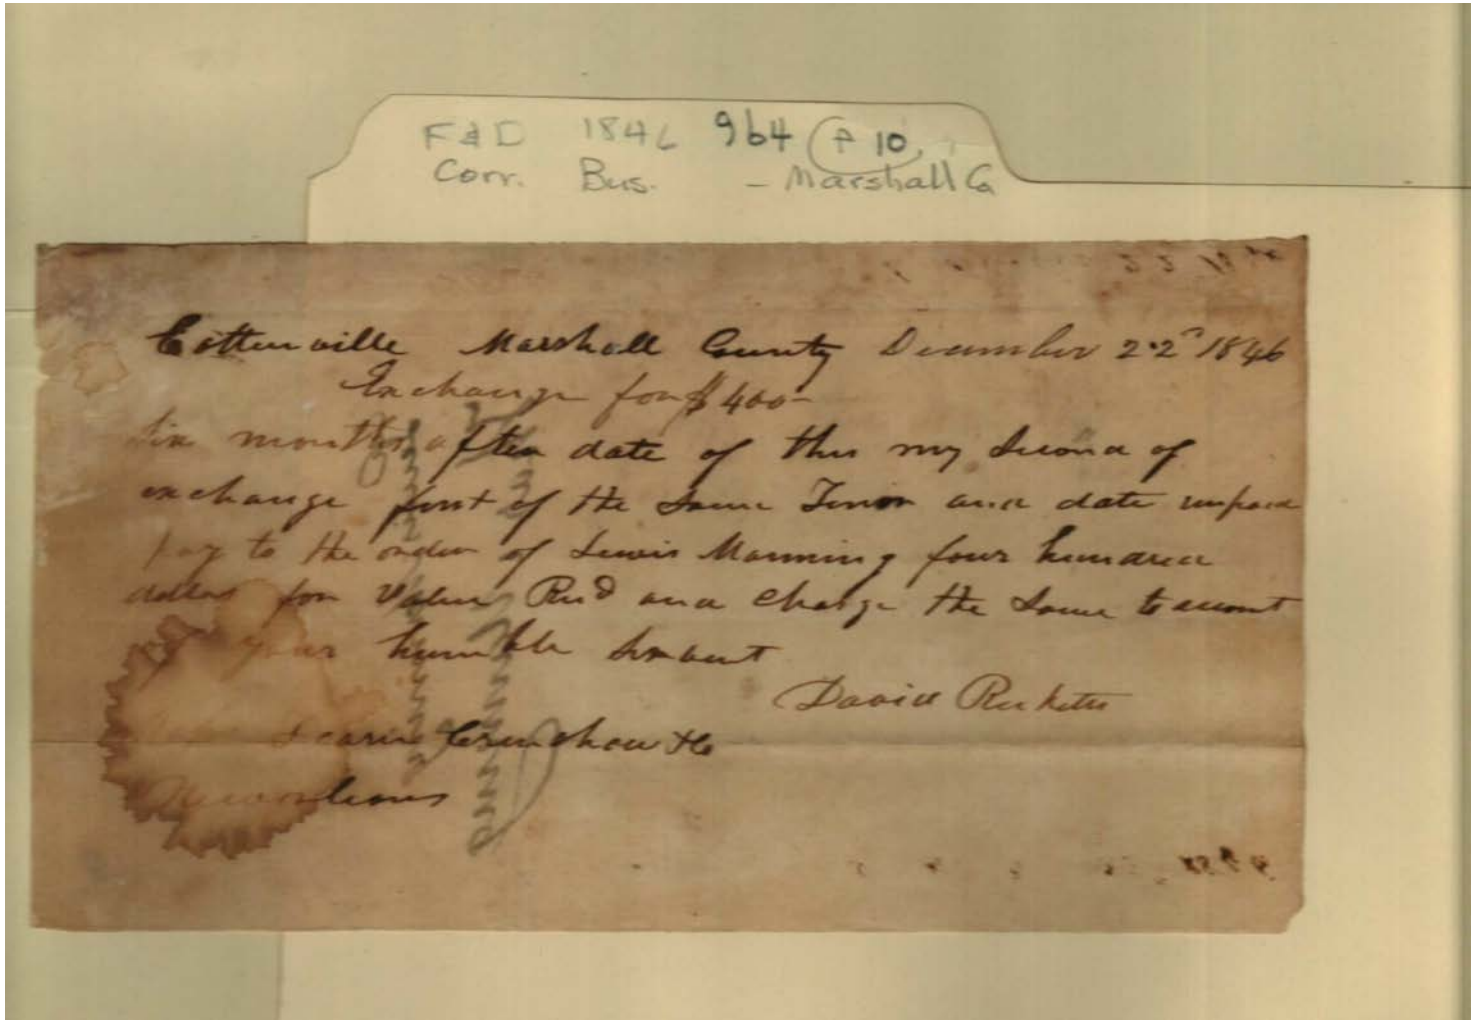 F & D 1846 964 P 10
Corr. Bus. - Marshall Co
Cottenville Marshall County December 22d 1846
Exchange for $400-
Six months after date of this my Second of
exchange first of the Same Tenor and date unpaid
pay to the order of Lewis Manning four hundred
dollars for Value Recd and Charge the Same to account
your humble Servant
David Ricketts
Crenshaw & Co
New orleans